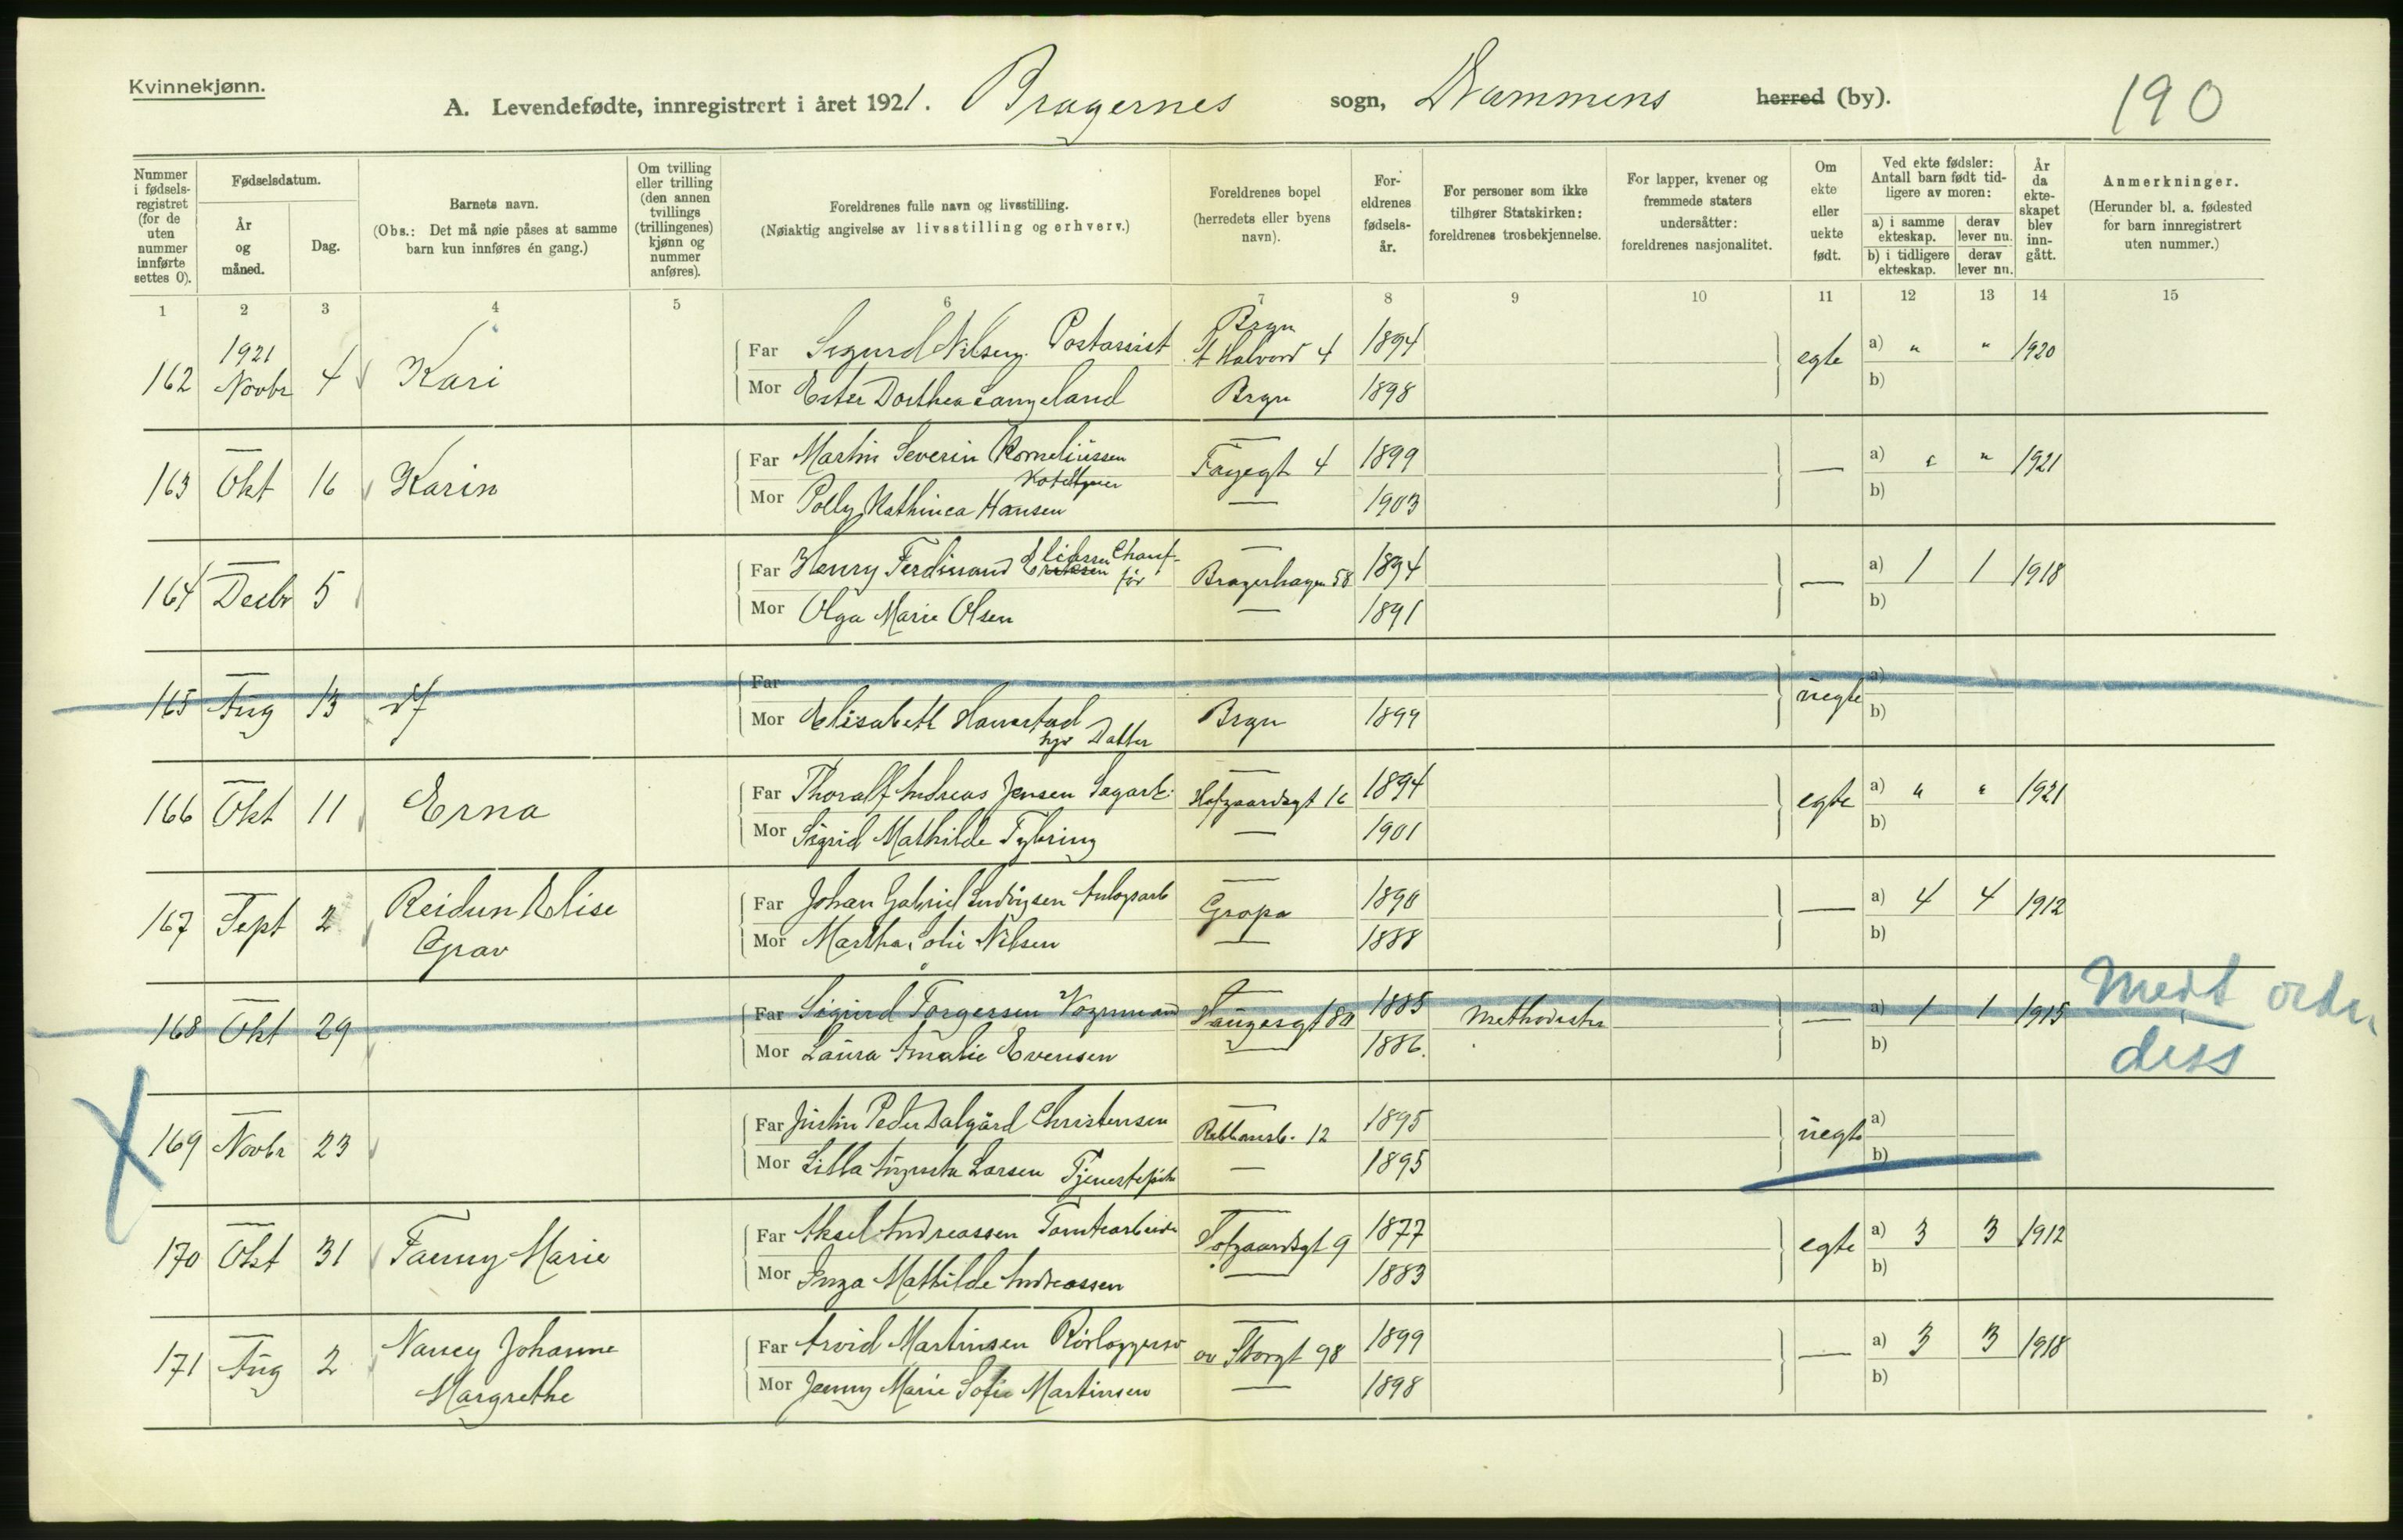 Kvinnekjønn.
A. Levendefødte, innregistrert i året 1921. Bragernes sogn, Drammens herred (by).
190
Nummer i fødselsregistret (for de uten nummer innførte settes 0).
Fødselsdatum.
År og måned.
Dag.
Barnets navn.
(Obs.: Det må nøie påses at samme barn kun innføres én gang.)
Om tvilling eller trilling (den annen tvillings (trillingenes) kjønn og nummer anføres).
Foreldrenes fulle navn og livsstilling.
(Nøiaktig angivelse av livsstilling og erhverv.)
Foreldrenes bopel (herredets eller byens navn).
Foreldrenes fødselsår.
For personer som ikke tilhører Statskirken: foreldrenes trosbekjennelse.
For lapper, kvener og fremmede staters undersåtter: foreldrenes nasjonalitet.
Om ekte eller uekte født.
Ved ekte fødsler: Antall barn født tidligere av moren:
a) i samme ekteskap. derav lever nu.
b) i tidligere ekteskap. derav lever nu.
År da ekteskapet blev inngått.
Anmerkninger.
(Herunder bl. a. fødested for barn innregistrert uten nummer.)
1 2 3 4 5 6 7 8 9 10 11 12 13 14 15
162 1921 Novbr 4 Kari
Far Sigurd Nilsen. Postassist Brgn St Halvard 4 1894 egte a) " " 1920
Mor Ester Dorthea Langeland Brgn 1898 b)
163 — Okt 16 Karin
Far Martin Severin Korneliussen — Fryegt 4 1899 — a) " " 1921
Mor Polly Kathinca Hansen — 1903 b)
164 — Decbr 5
Far Henry Ferdinand Eriksen Chauffør — Bragerhagen 58 1894 — a) 1 1 1918
Mor Olga Marie Olsen — 1891 b)
165 — Aug 13
Far uegte a)
Mor Elisabeth Datter Brgn 1899 b)
166 — Okt 11 Erna
Far Thoralf Andreas Jensen Sagarb. — Hofgaardsgt 16 1894 egte a) " " 1921
Mor Sigrid Mathilde Tybring — 1901 b)
167 — Sept 2 Reidun Elise Grav
Far Johan Gabriel Ludvigsen Anlegsarb — Gropa 1890 — a) 4 4 1912
Mor Martha Sofie Nilsen — 1888 b)
168 — Okt 29
Far Sigurd Torgersen Vognmand — Haugesgt 80 1885 Methodister — a) 1 1 1915
Mor Laura Amalie Evensen — 1886. b)
diss
169 — Novbr 23
Far Justin Peder Dalgård Christensen — 12 1895 uegte a)
Mor Lilla Augusta Larsen Tjenestepike — 1895 b)
170 — Okt 31 Fanny Marie
Far Aksel Andreassen Tomtearbeider — Hofgaardsgt 9 1877 egte a) 3 3 1912
Mor Inga Mathilde Andreassen — 1883 b)
171 — Aug 2 Nancy Johanne Margrethe
Far Arvid Martinsen Rørlæggersv — øv Storgt 98 1899 — a) 3 3 1918
Mor Jenny Marie Sofie Martinsen — 1898 b)